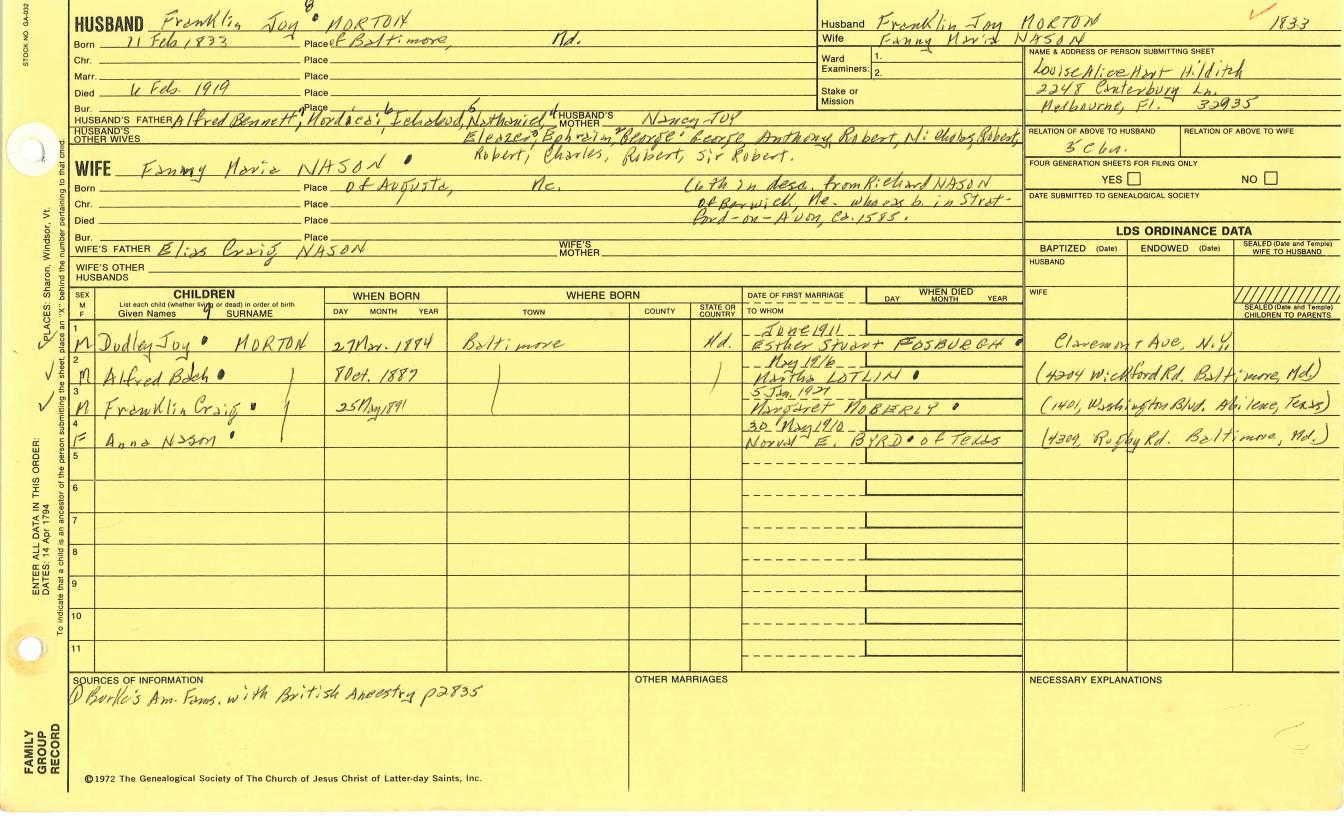 STOCK NO. GA-032
HUSBAND Franklin Joy 8 MORTON
Born 11 Feb 1833 Place of Baltimore, Md.
Chr. Place
Marr. Place
Died 6 Feb. 1919 Place
Bur. Place
HUSBAND'S FATHER Alfred Bennett,7 Mordecai,6 Ichabod,5 Nathaniel,4 HUSBAND'S MOTHER Nancy JOY
HUSBAND'S OTHER WIVES Eleazer,3 Ephraim,2 George,1 George, Anthony, Robert, Nicholas, Robert,
Robert, Charles, Robert, Sir Robert.
WIFE Fanny Maria NASON
Born Place of Augusta, Me. (6th in desc. from Richard NASON
Chr. Place of Berwick, Me. who was b. in Strat-
Died Place ford-on-Avon, Ca. 1585.
Bur. Place
WIFE'S FATHER Elias Craig NASON WIFE'S MOTHER
WIFE'S OTHER HUSBANDS
Husband Franklin Joy MORTON 1833
Wife Fanny Maria NASON
Ward 1.
Examiners: 2.
Stake or Mission
NAME & ADDRESS OF PERSON SUBMITTING SHEET
Louise Alice Hart Hilditch
2248 Canterbury Ln.
Melbourne, Fl. 32935
RELATION OF ABOVE TO HUSBAND RELATION OF ABOVE TO WIFE
FOUR GENERATION SHEETS FOR FILING ONLY
YES NO
DATE SUBMITTED TO GENEALOGICAL SOCIETY
LDS ORDINANCE DATA
BAPTIZED (Date) ENDOWED (Date) SEALED (Date and Temple) WIFE TO HUSBAND
HUSBAND
WIFE
SEALED (Date and Temple) CHILDREN TO PARENTS
SEX M F CHILDREN WHEN BORN WHERE BORN DATE OF FIRST MARRIAGE WHEN DIED
List each child (whether living or dead) in order of birth
Given Names 9 SURNAME DAY MONTH YEAR TOWN COUNTY STATE OR COUNTRY TO WHOM DAY MONTH YEAR
1 June 1911
M Dudley Joy MORTON 27 Mar. 1884 Baltimore Md. Esther Stuart FOSBURGH Claremont Ave, N.Y.
2 May 1916
M Alfred Bach 8 Oct. 1887 Martha LOTLIN (4204 Wickford Rd. Baltimore, Md.)
3 5 Jan. 1927
M Franklin Craig 25 May 1891 Margaret MOBERLY (1401, Washington Blvd. Abilene, Texas)
4 30 May 1910
F Anna Nason Norval E. BYRD of Texas (4309, Rugby Rd. Baltimore, Md.)
5
6
7
8
9
10
11
SOURCES OF INFORMATION
① Burke's Am. Fams. with British Ancestry p2835
OTHER MARRIAGES
NECESSARY EXPLANATIONS
©1972 The Genealogical Society of The Church of Jesus Christ of Latter-day Saints, Inc.
FAMILY GROUP RECORD
ENTER ALL DATA IN THIS ORDER:
DATES: 14 Apr 1794
PLACES: Sharon, Windsor, Vt.
To indicate that a child is an ancestor of the person submitting the sheet, place an "X" behind the number pertaining to that child.